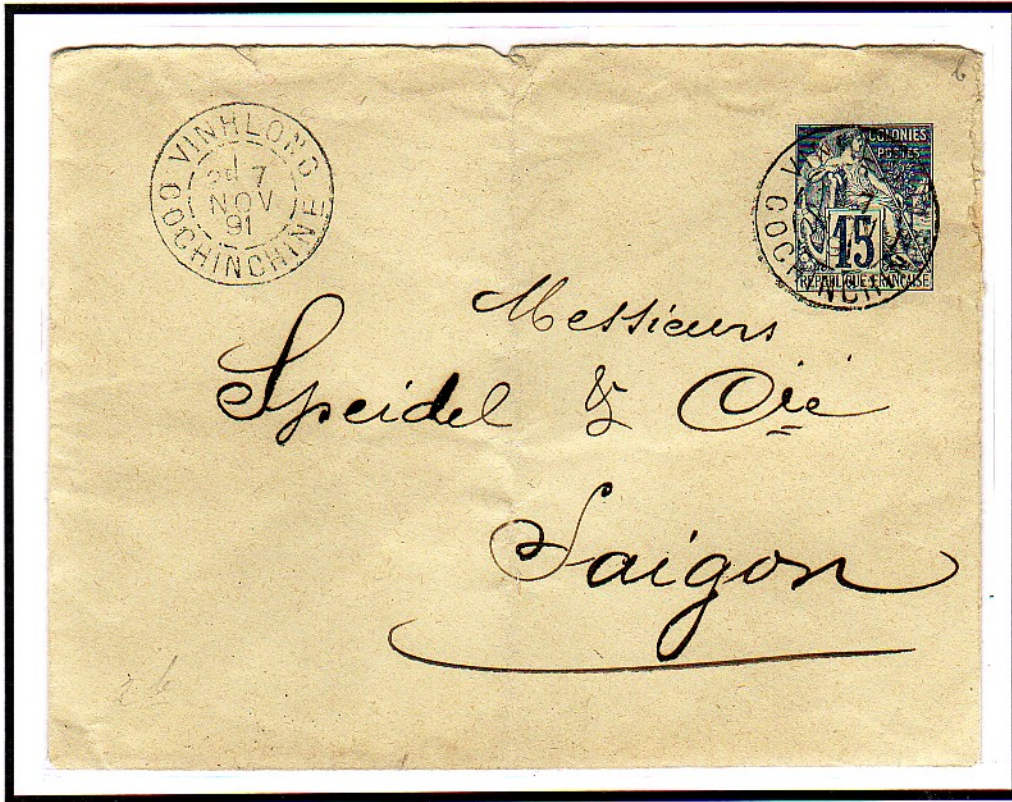 VINHLONG
7
NOV
91
COCHINCHINE
COLONIES
POSTES
15
REPUBLIQUE FRANÇAISE
COCHINCHINE
Messieurs
Speidel & Cie
Saigon